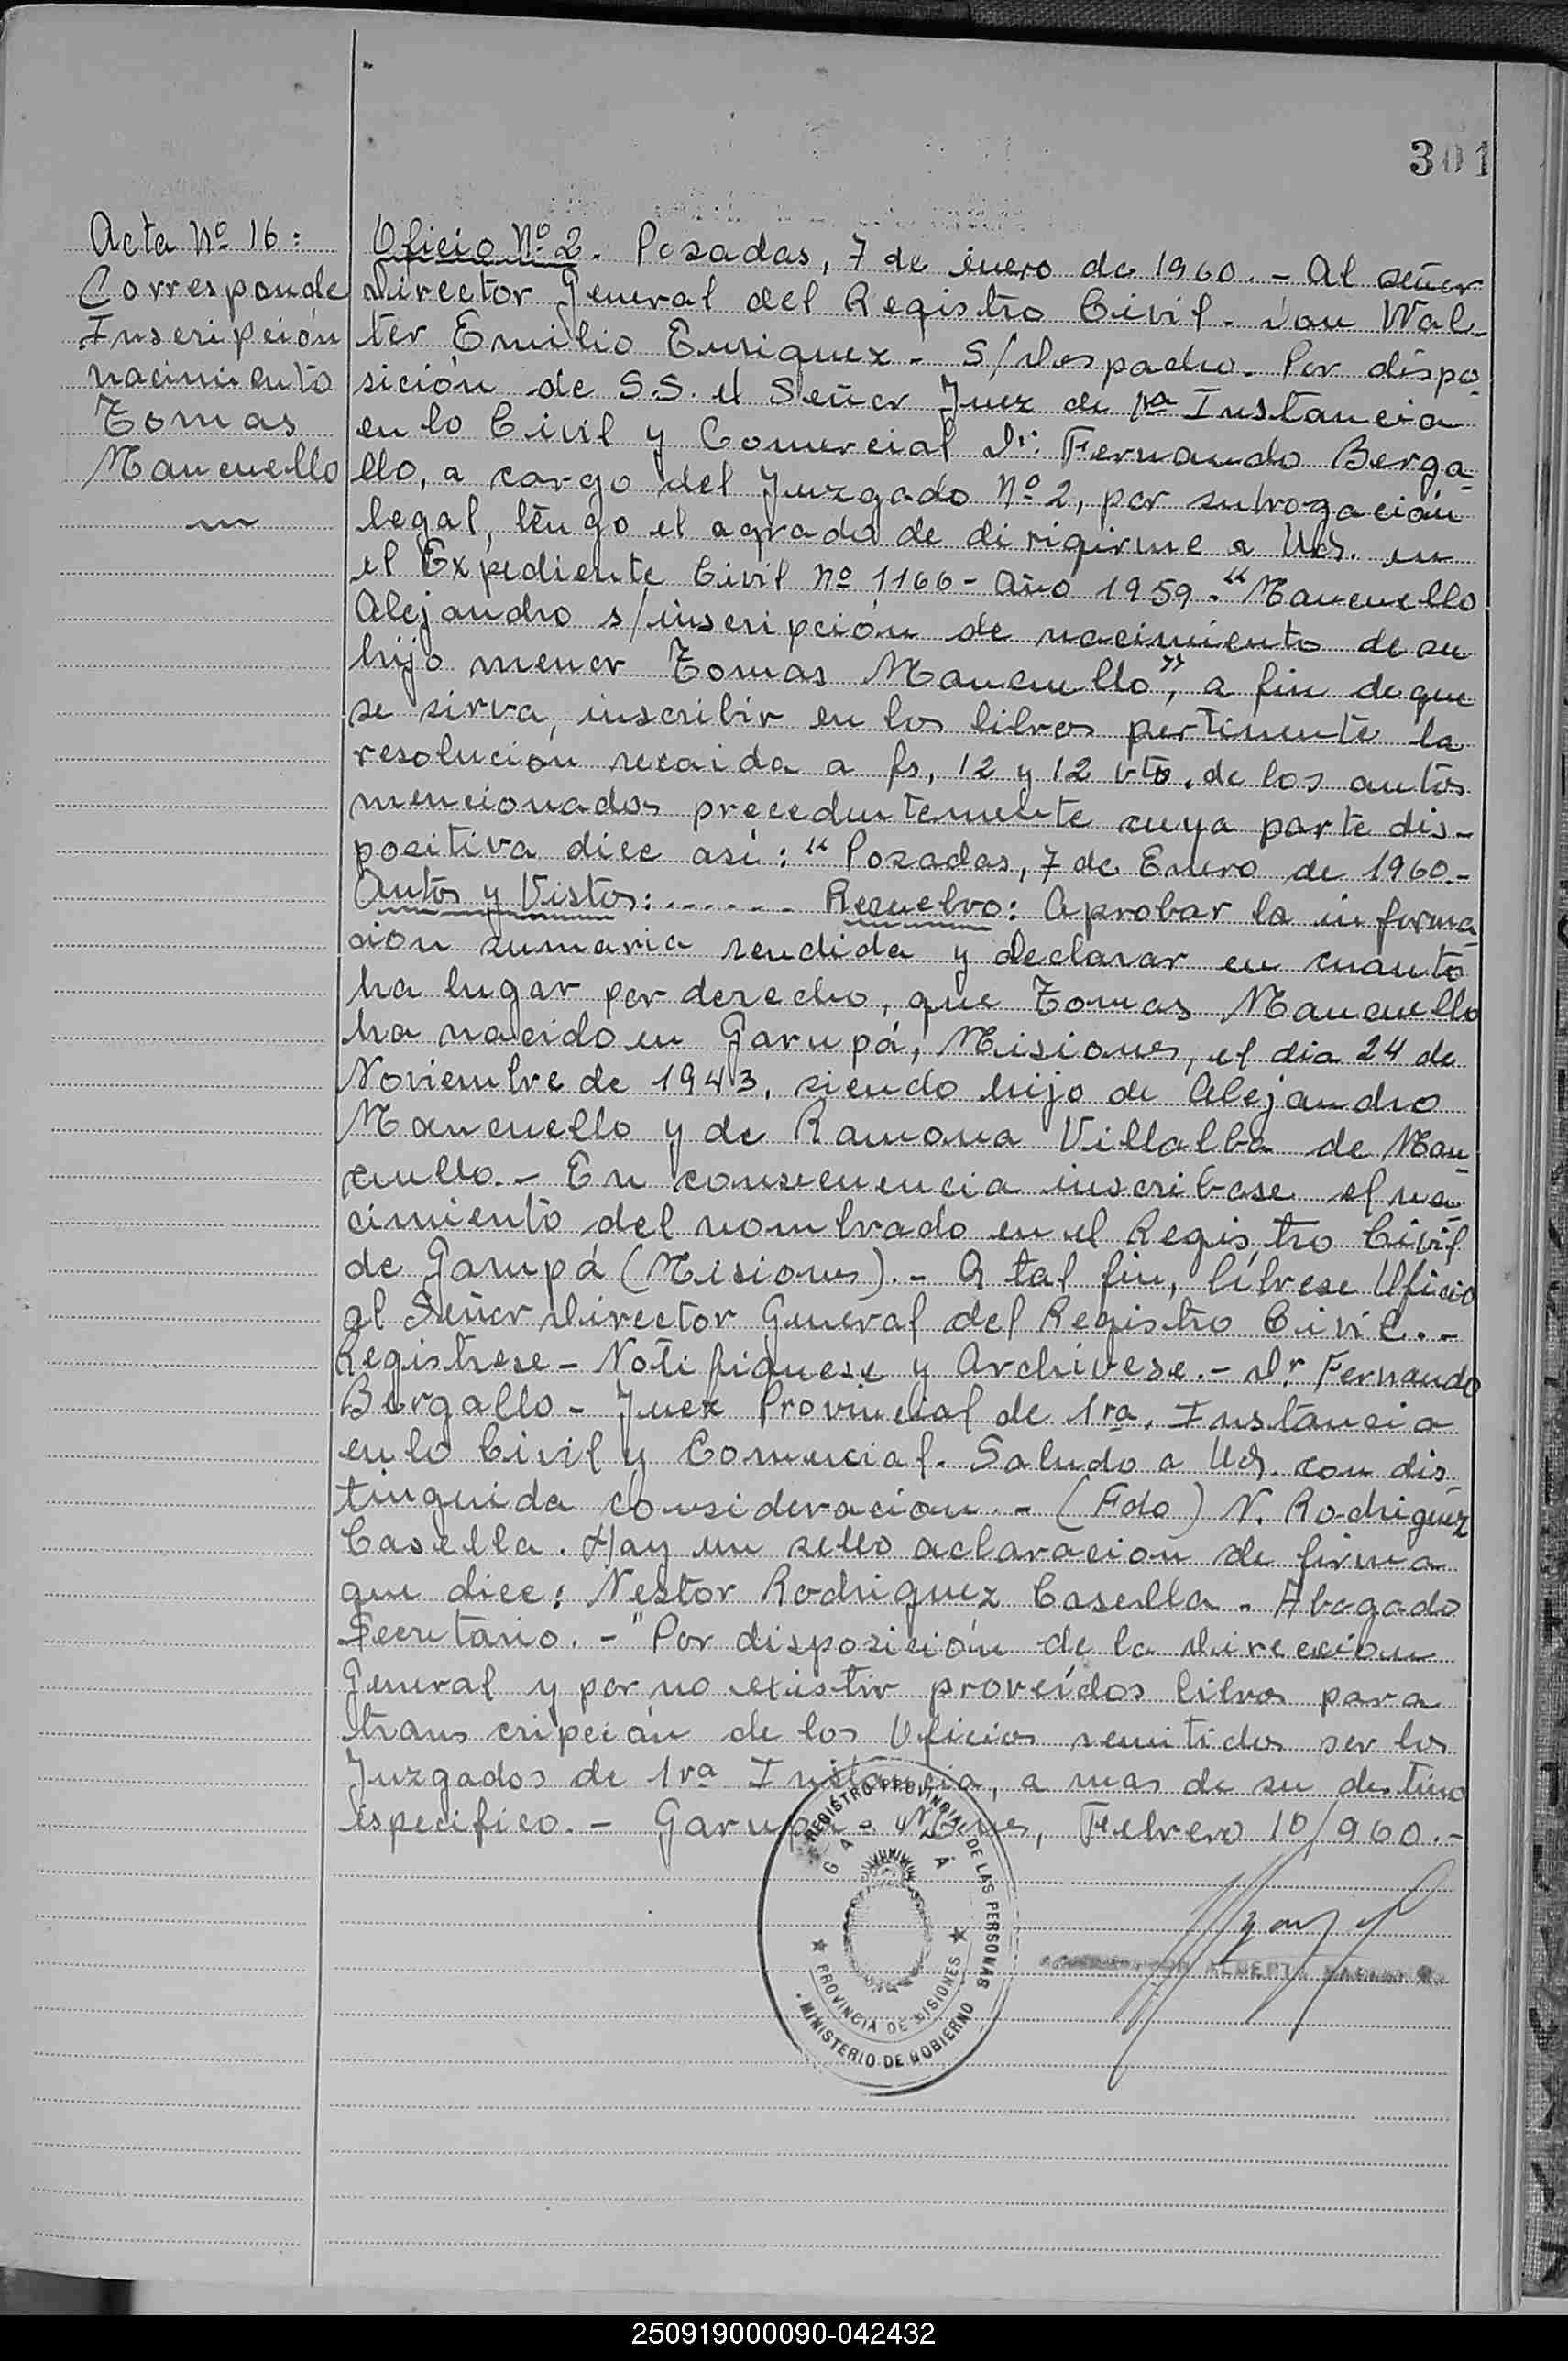 301
Acta Nº 16:
Corresponde
Inscripción
nacimiento
Tomas
Mancuello
Oficio Nº 2. Posadas, 7 de enero de 1960. - Al señor
Director General del Registro Civil. Don Wal-
ter Emilio Enriquez - S/Despacho. Por dispo-
sición de S.S. el Señor Juez de 1ra Instancia
en lo Civil y Comercial Dr. Fernando Berga-
llo, a cargo del Juzgado Nº 2, por subrogación
legal, tengo el agrado de dirigirme a Ud. en
el Expediente Civil Nº 1166 - Año 1959. "Mancuello
Alejandro s/inscripción de nacimiento de su
hijo menor Tomas Mancuello", a fin de que
se sirva, inscribir en los libros pertinente la
resolución recaida a fs, 12 y 12 vto. de los autos
mencionados precedentemente cuya parte dis-
positiva dice así: "Posadas, 7 de Enero de 1960.-
Autos y Vistos: ...... Resuelvo: Aprobar la informa-
cion sumaria rendida y declarar en cuanto
ha lugar por derecho, que Tomas Mancuello
ha nacido en Garupá, Misiones, el dia 24 de
Noviembre de 1943, siendo hijo de Alejandro
Mancuello y de Ramona Villalba de Man-
cuello. - En consecuencia inscribase el na-
cimiento del nombrado en el Registro Civil
de Garupá (Misiones). - A tal fin, líbrese Oficio
al Señor Director General del Registro Civil. -
Registrese - Notifiquese y Archivese. - Dr Fernando
Bergallo - Juez Provincial de 1ra. Instancia
en lo Civil y Comercial. Saludo a Ud. con dis-
tinguida consideracion. - (Fdo) N. Rodriguez
Casella. Hay un sello aclaracion de firma
que dice: Nestor Rodriguez Casella - Abogado
Secretario. - "Por disposición de la Direccion
General y por no existir proveídos libros para
transcripción de los Oficios remitidos ser los
Juzgados de 1ra Instancia, a mas de su destino
especifico. - Garupá - Mnes, Febrero 10/960. -
REGISTRO PROVINCIAL DE LAS PERSONAS
GARUPÁ
PROVINCIA DE MISIONES
MINISTERIO DE GOBIERNO
ALBERTO
250919000090-042432